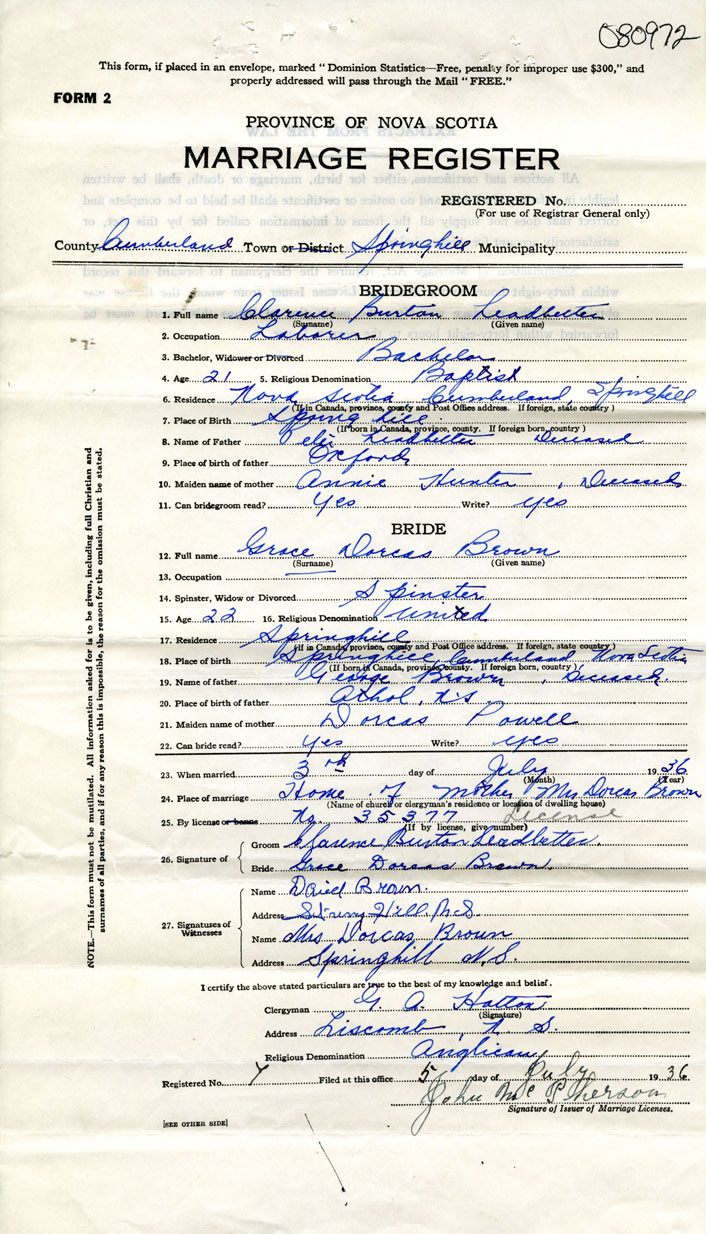 080972
This form, if placed in an envelope, marked "Dominion Statistics—Free, penalty for improper use $300," and
properly addressed will pass through the Mail "FREE."
FORM 2
PROVINCE OF NOVA SCOTIA
MARRIAGE REGISTER
REGISTERED No.
(For use of Registrar General only)
County Cumberland Town or District Springhill Municipality
BRIDEGROOM
1. Full name Clarence Burton Leadbetter
(Surname) (Given name)
2. Occupation Laborer
3. Bachelor, Widower or Divorced Bachelor
4. Age 21 5. Religious Denomination Baptist
6. Residence Nova Scotia Cumberland, Springhill
(If in Canada, province, county and Post Office address. If foreign, state country)
7. Place of Birth Spring hill
(If born in Canada, province, county. If foreign born, country)
8. Name of Father Leadbetter Deceased
9. Place of birth of father Oxford
10. Maiden name of mother Annie Hunter, Deceased
11. Can bridegroom read? Yes Write? yes
BRIDE
12. Full name Grace Dorcas Brown
(Surname) (Given name)
13. Occupation
14. Spinster, Widow or Divorced Spinster
15. Age 22 16. Religious Denomination United
17. Residence Springhill
(If in Canada, province, county and Post Office address. If foreign, state country)
18. Place of birth Springhill, Cumberland Nova Scotia
(If born in Canada, province, county. If foreign born, country)
19. Name of father George Brown, Deceased
20. Place of birth of father Athol, N.S.
21. Maiden name of mother Dorcas Powell
22. Can bride read? yes Write? yes
23. When married 3rd day of July 1936
(Month) (Year)
24. Place of marriage Home of Mother Mrs Dorcas Brown
(Name of church or clergyman's residence or location of dwelling house)
25. By license or banns No. 35377 License
(If by license, give number)
26. Signature of
Groom Clarence Burton Leadbetter.
Bride Grace Dorcas Brown.
27. Signatures of Witnesses
Name David Brown.
Address Spring Hill, N.S.
Name Mrs Dorcas Brown
Address Springhill N.S.
I certify the above stated particulars are true to the best of my knowledge and belief.
Clergyman G. A. Hatton
(Signature)
Address Liscomb, N. S.
Religious Denomination Anglican
Registered No. Filed at this office 5 day of July 1936
John McPherson
Signature of Issuer of Marriage Licenses.
[SEE OTHER SIDE]
NOTE.—This form must not be mutilated. All information asked for is to be given, including full Christian and
surnames of all parties, and if for any reason this is impossible, the reason for the omission must be stated.